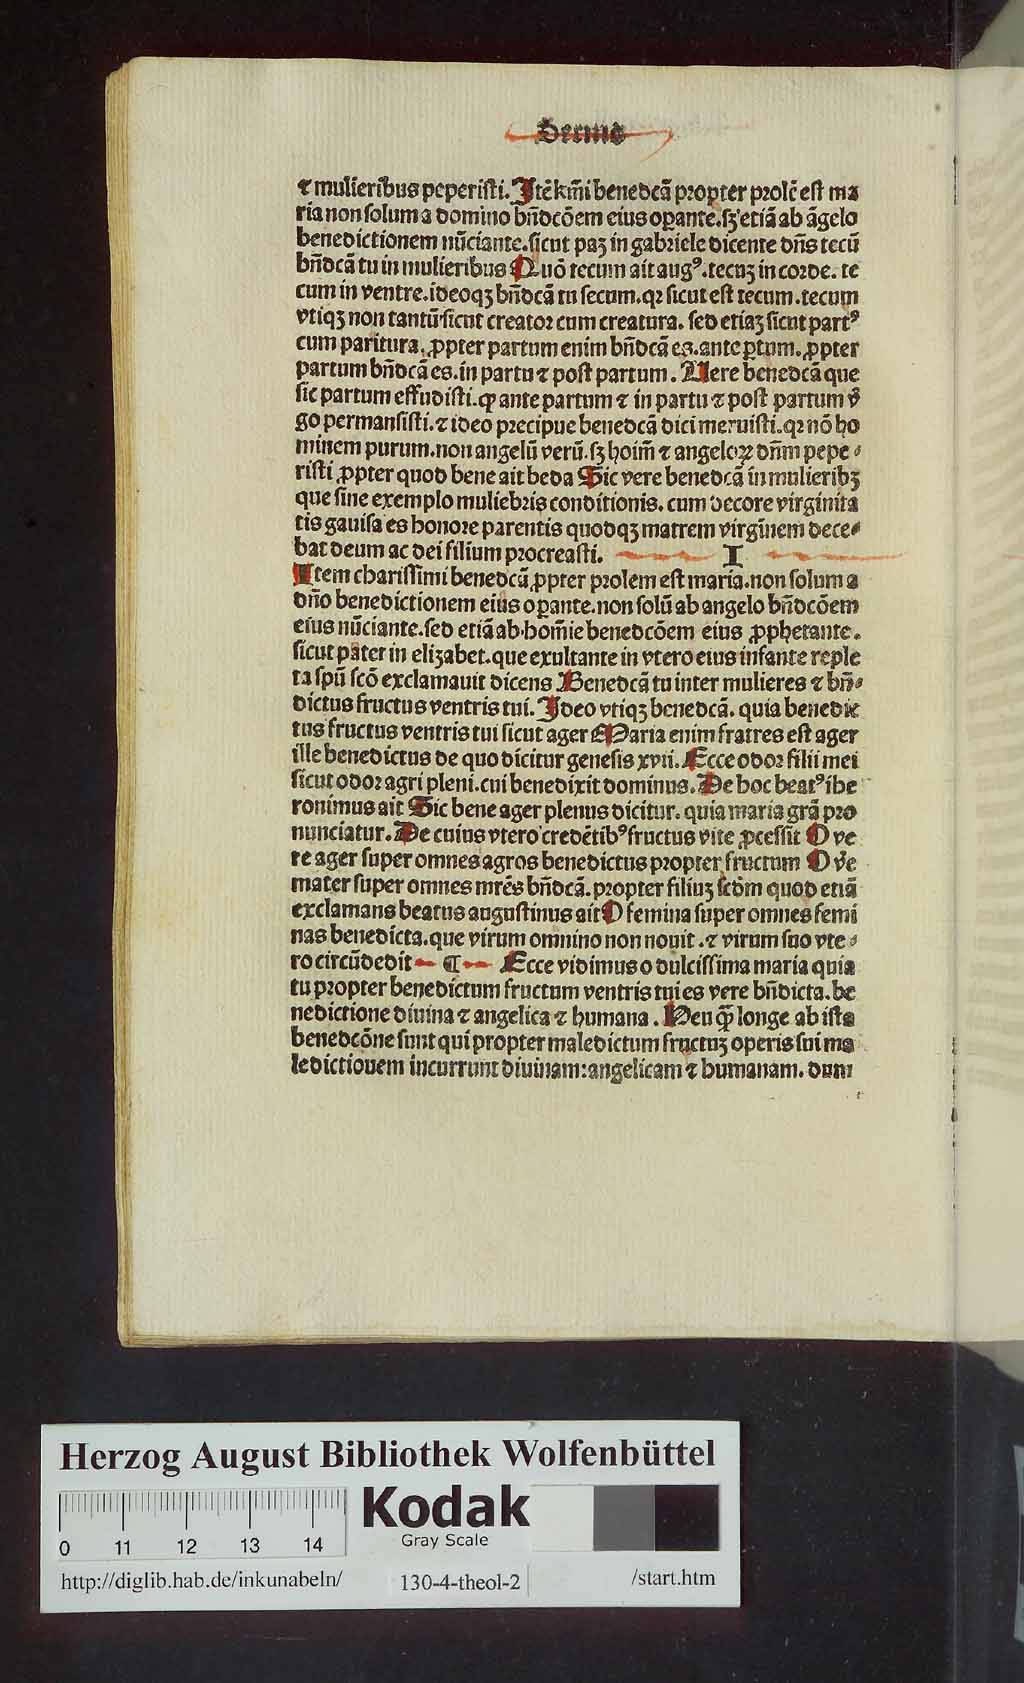 Sermo
⁊ mulieribus peperisti. Itē km̄i benedcā propter prolē est ma
ria non solum a domino bn̄dcōem eius oꝑante. sꝫ etiā ab āgelo
benedictionem nūciante. sicut paꝫ in gabriele dicente dn̄s tecū
bn̄dcā tu in mulieribus Quō tecum ait augꝰ. tecuꝫ in corde. te
cum in ventre. ideoqꝫ bn̄dcā tu secum. qꝛ sicut est tecum. tecum
vtiqꝫ non tantū sicut creator cum creatura. sed etiaꝫ sicut partꝰ
cum paritura. ꝓpter partum enim bn̄dcā es. ante ꝑtum. ꝓpter
partum bn̄dcā es. in partu ⁊ post partum. Vere benedcā que
sic partum effudisti. ꝙ ante partum ⁊ in partu ⁊ post partum v̄
go permansisti. ⁊ ideo precipue benedcā dici meruisti. qꝛ nō ho
minem purum. non angelū verū. sꝫ hoim̄ ⁊ angeloꝝ dn̄m pepe⸗
risti ꝓpter quod bene ait beda Sic vere benedcā in mulieribꝫ
que sine exemplo muliebris conditionis. cum decore virginita
tis gauisa es honore parentis quodqꝫ matrem virgīnem dece⸗
bat deum ac dei filium procreasti. I
Item charissimi benedcā ꝓpter prolem est maria. non solum a
dn̄o benedictionem eius oꝑante. non solū ab angelo bn̄dcōem
eius nūciante. sed etiā ab hom̄ie benedcōem eius ꝓphetante.
sicut patet in elizabet. que exultante in vtero eius infante reple
ta spū scō exclamauit dicens Benedcā tu inter mulieres ⁊ bn̄⸗
dictus fructus ventris tui. Ideo vtiqꝫ benedcā. quia benedic
tus fructus ventris tui sicut ager Maria enim fratres est ager
ille benedictus de quo dicitur genesis xvii. Ecce odor filii mei
sicut odor agri pleni. cui benedixit dominus. De hoc beatꝰ ihe
ronimus ait Sic bene ager plenus dicitur. quia maria grā pro
nunciatur. De cuius vtero credētibꝰ fructus vite ꝓcessit O ve
re ager super omnes agros benedictus propter fructum O v̄e
mater super omnes mrēs bn̄dcā. propter filiuꝫ scd̄m quod etiā
exclamans beatus augustinus ait O femina super omnes femi
nas benedicta. que virum omnino non nouit. ⁊ virum suo vte⸗
ro circūdedit ¶ Ecce vidimus o dulcissima maria quia
tu propter benedictum fructum ventris tui es vere bn̄dicta. be
nedictione diuina ⁊ angelica ⁊ humana. Heu ꝙ̄ longe ab ista
benedcōne sunt qui propter maledictum fructuꝫ operis sui ma
ledictionem incurrunt diuinam: angelicam ⁊ humanam. dum
Herzog August Bibliothek Wolfenbüttel
Kodak
Gray Scale
0 11 12 13 14
http://diglib.hab.de/inkunabeln/ 130-4-theol-2 /start.htm